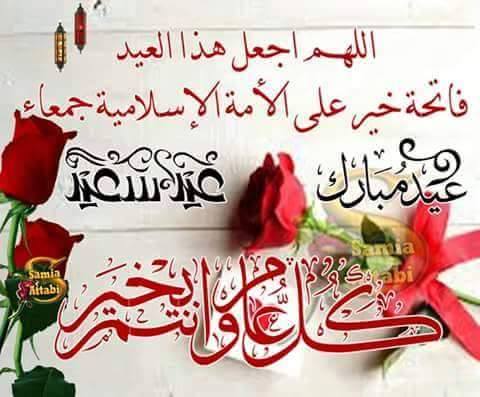 اللهم اجعل هذا العيد
فاتحة خير على الأمة الإسلامية جمعاء
عيد مبارك
عيد سعيد
كل عام وانتم بخير
Samia Aftabi
Samia Aftabi